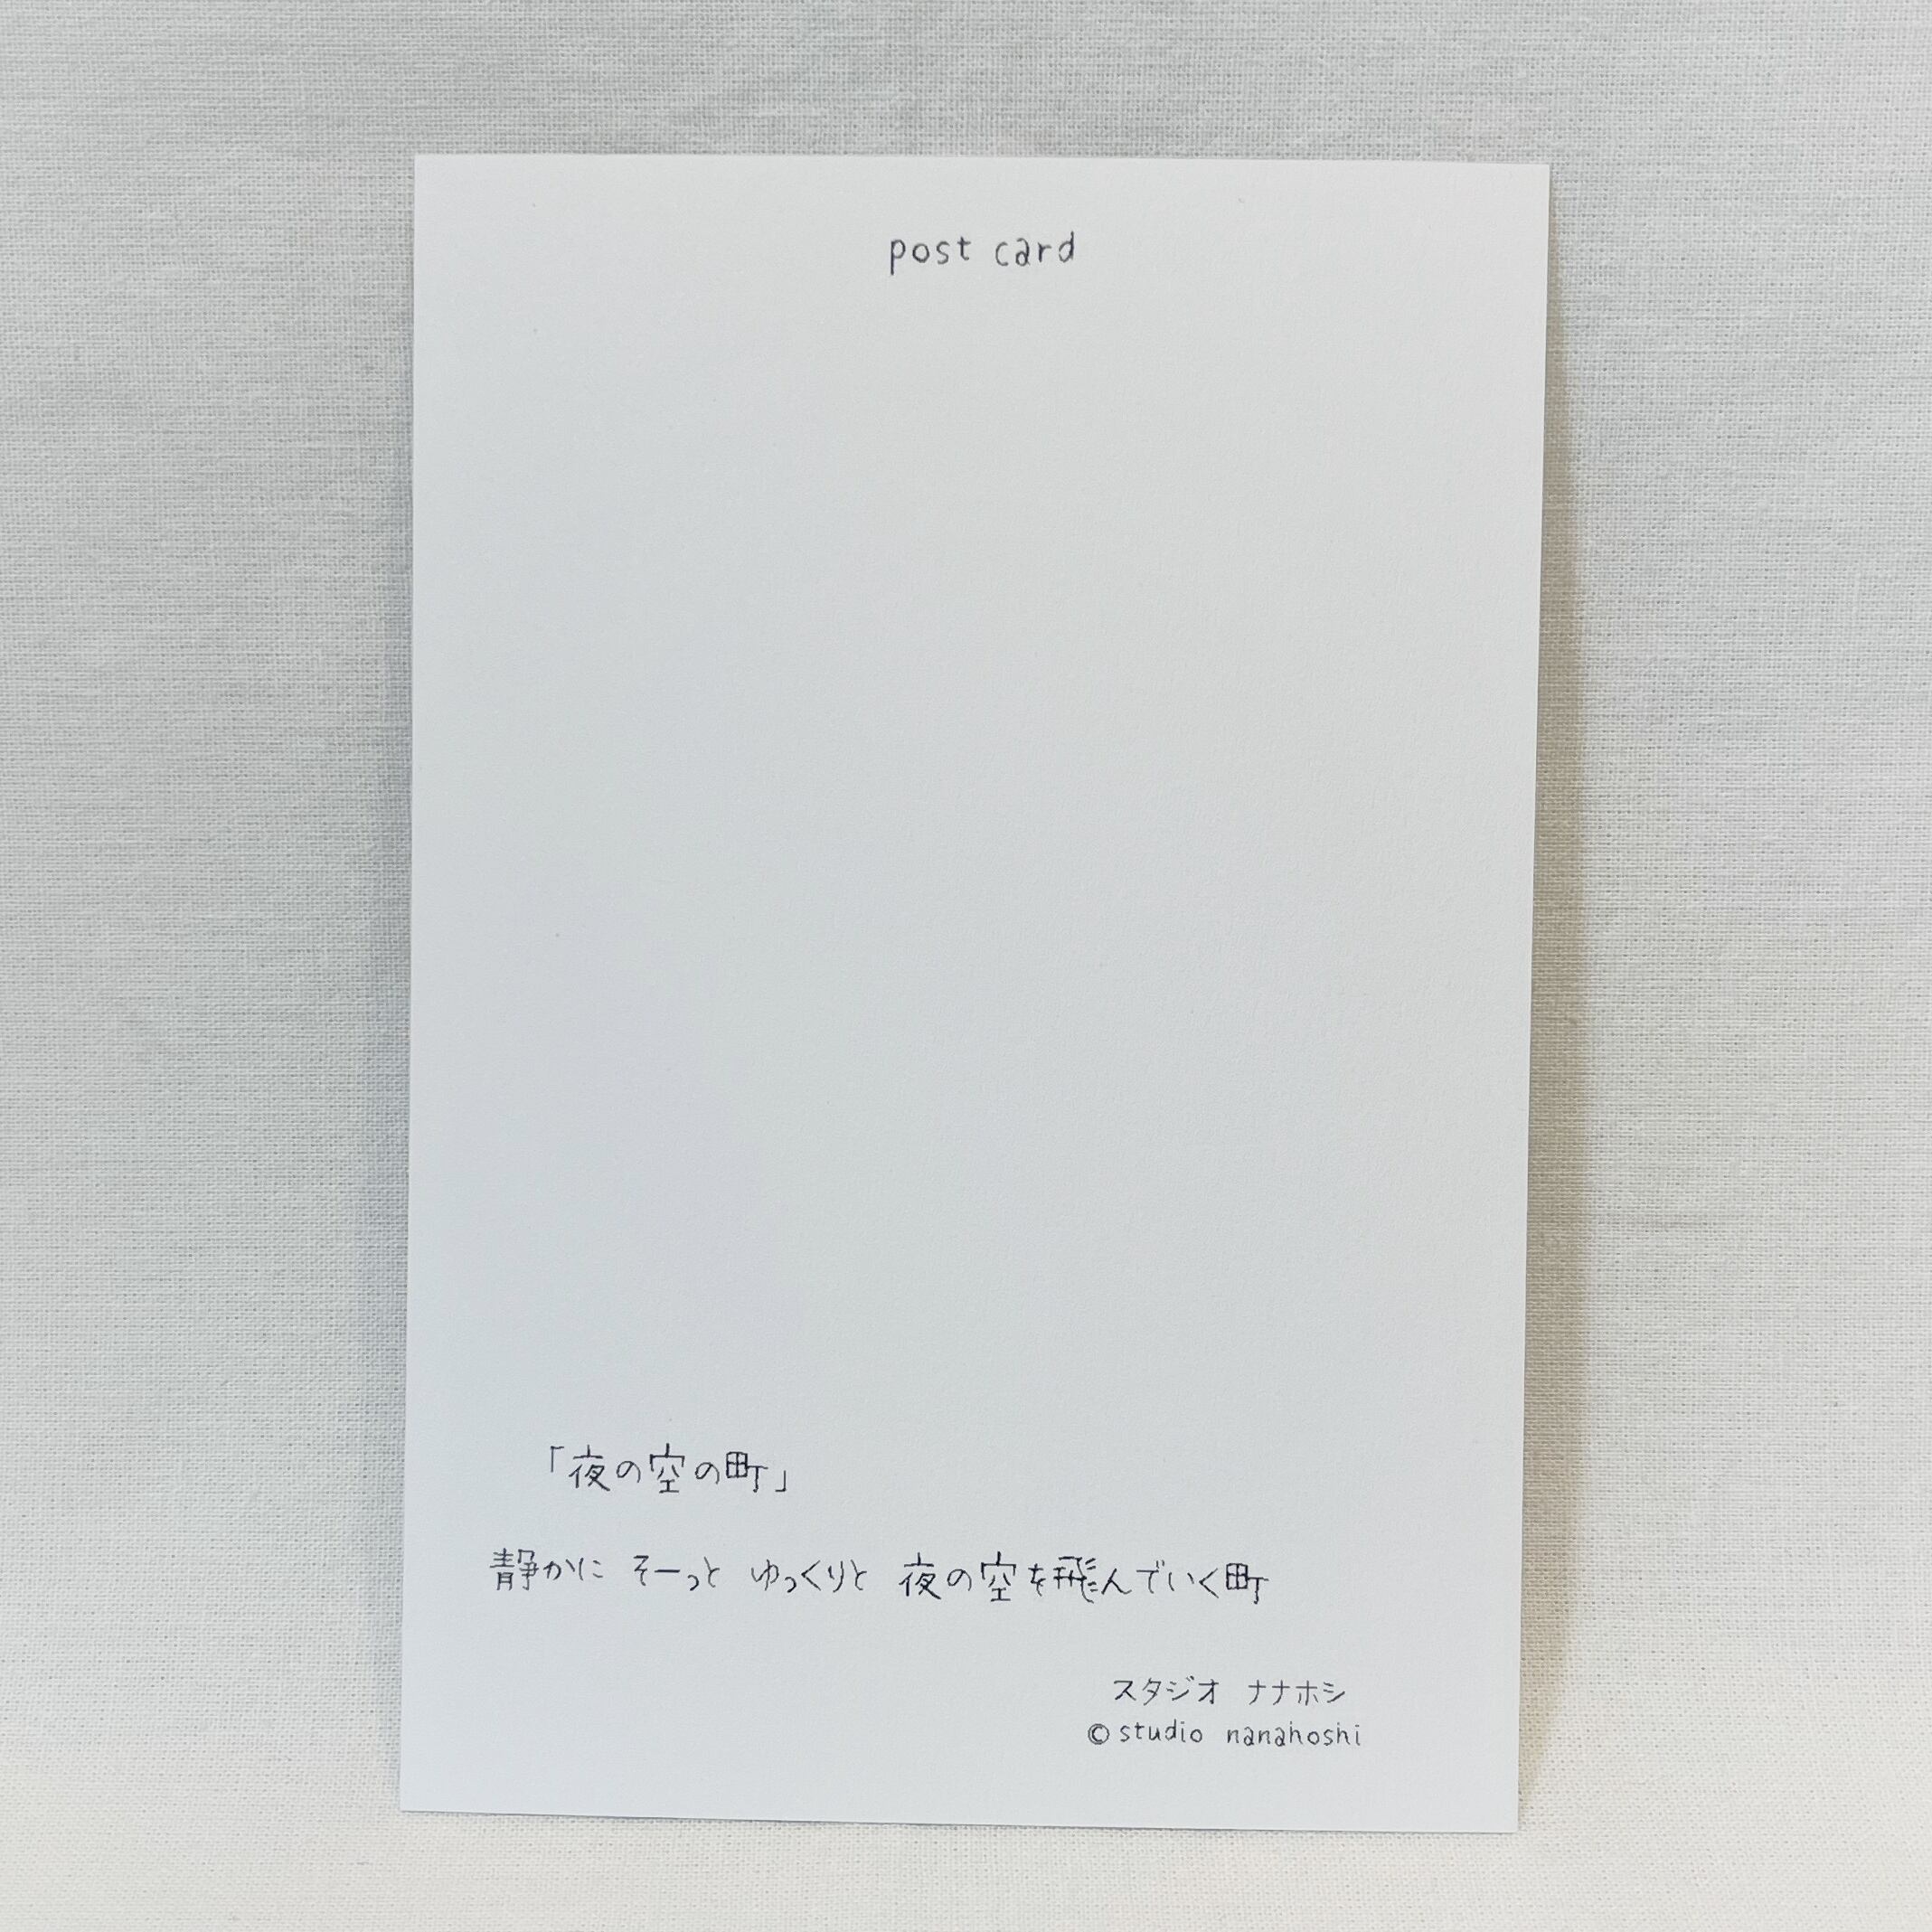 post card
「夜の空の町」
静かに そーっと ゆっくりと 夜の空を飛んでいく町
スタジオ ナナホシ
©studio nanahoshi